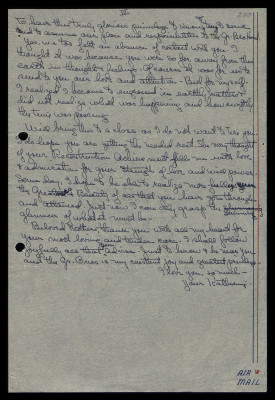 to have this truly glorious privilege to
and to assume our place and responsibilities to the Gr. Bro.hood.
Yes, we too felt an absence of contact with you. I
thought it was because you were so far away from this
earth in thought & feeling. Of course it was for us to
send to you our love and attention. But for myself
I realized I became so engrossed in earthly matters I
did not realize what was happening and how swiftly
the time was passing.
Will bring this to a close as I do not want to tire you.
I do hope you are getting the needed rest. The very thought
of your Resurrection Achievement fills me with love
& admiration for your strength of love and will power.
Some day I hope to be able to realize more fully
the Greatness & beauty of all that you have gone through
and attained. Just now I can only grasp the
glimmer of what it must be.
Beloved brother, thank you with all my heart for
your most loving and tender care. I shall follow
joyfully all that you advise. Just to know & be near you
and the Gr. Bros is my constant joy and greatest privilege.
I love you so much -
Your Kathleen.
AIR
MAIL